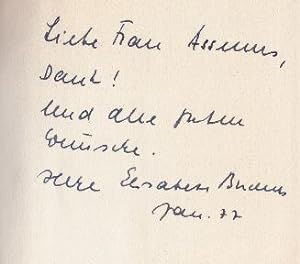 Liebe Frau Assmus,
Dank!
Und alle guten
Wünsche.
Ihre Elisabeth
Jan. 77